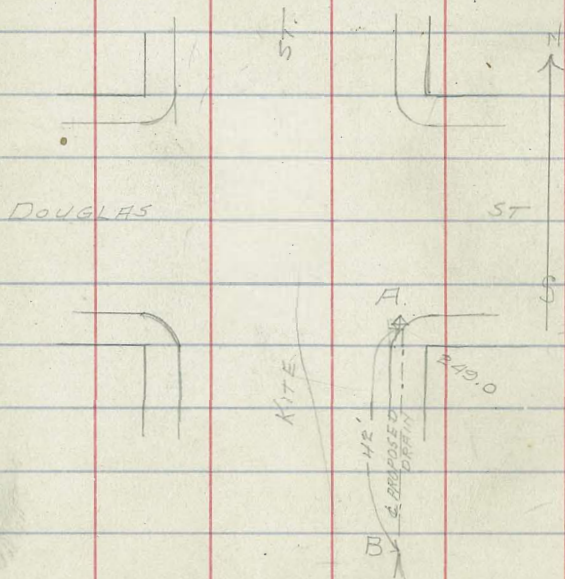 ST.
N
DOUGLAS
ST
S
A.
249.0
KITE
42'
℄ PROPOSED
DRAIN
B